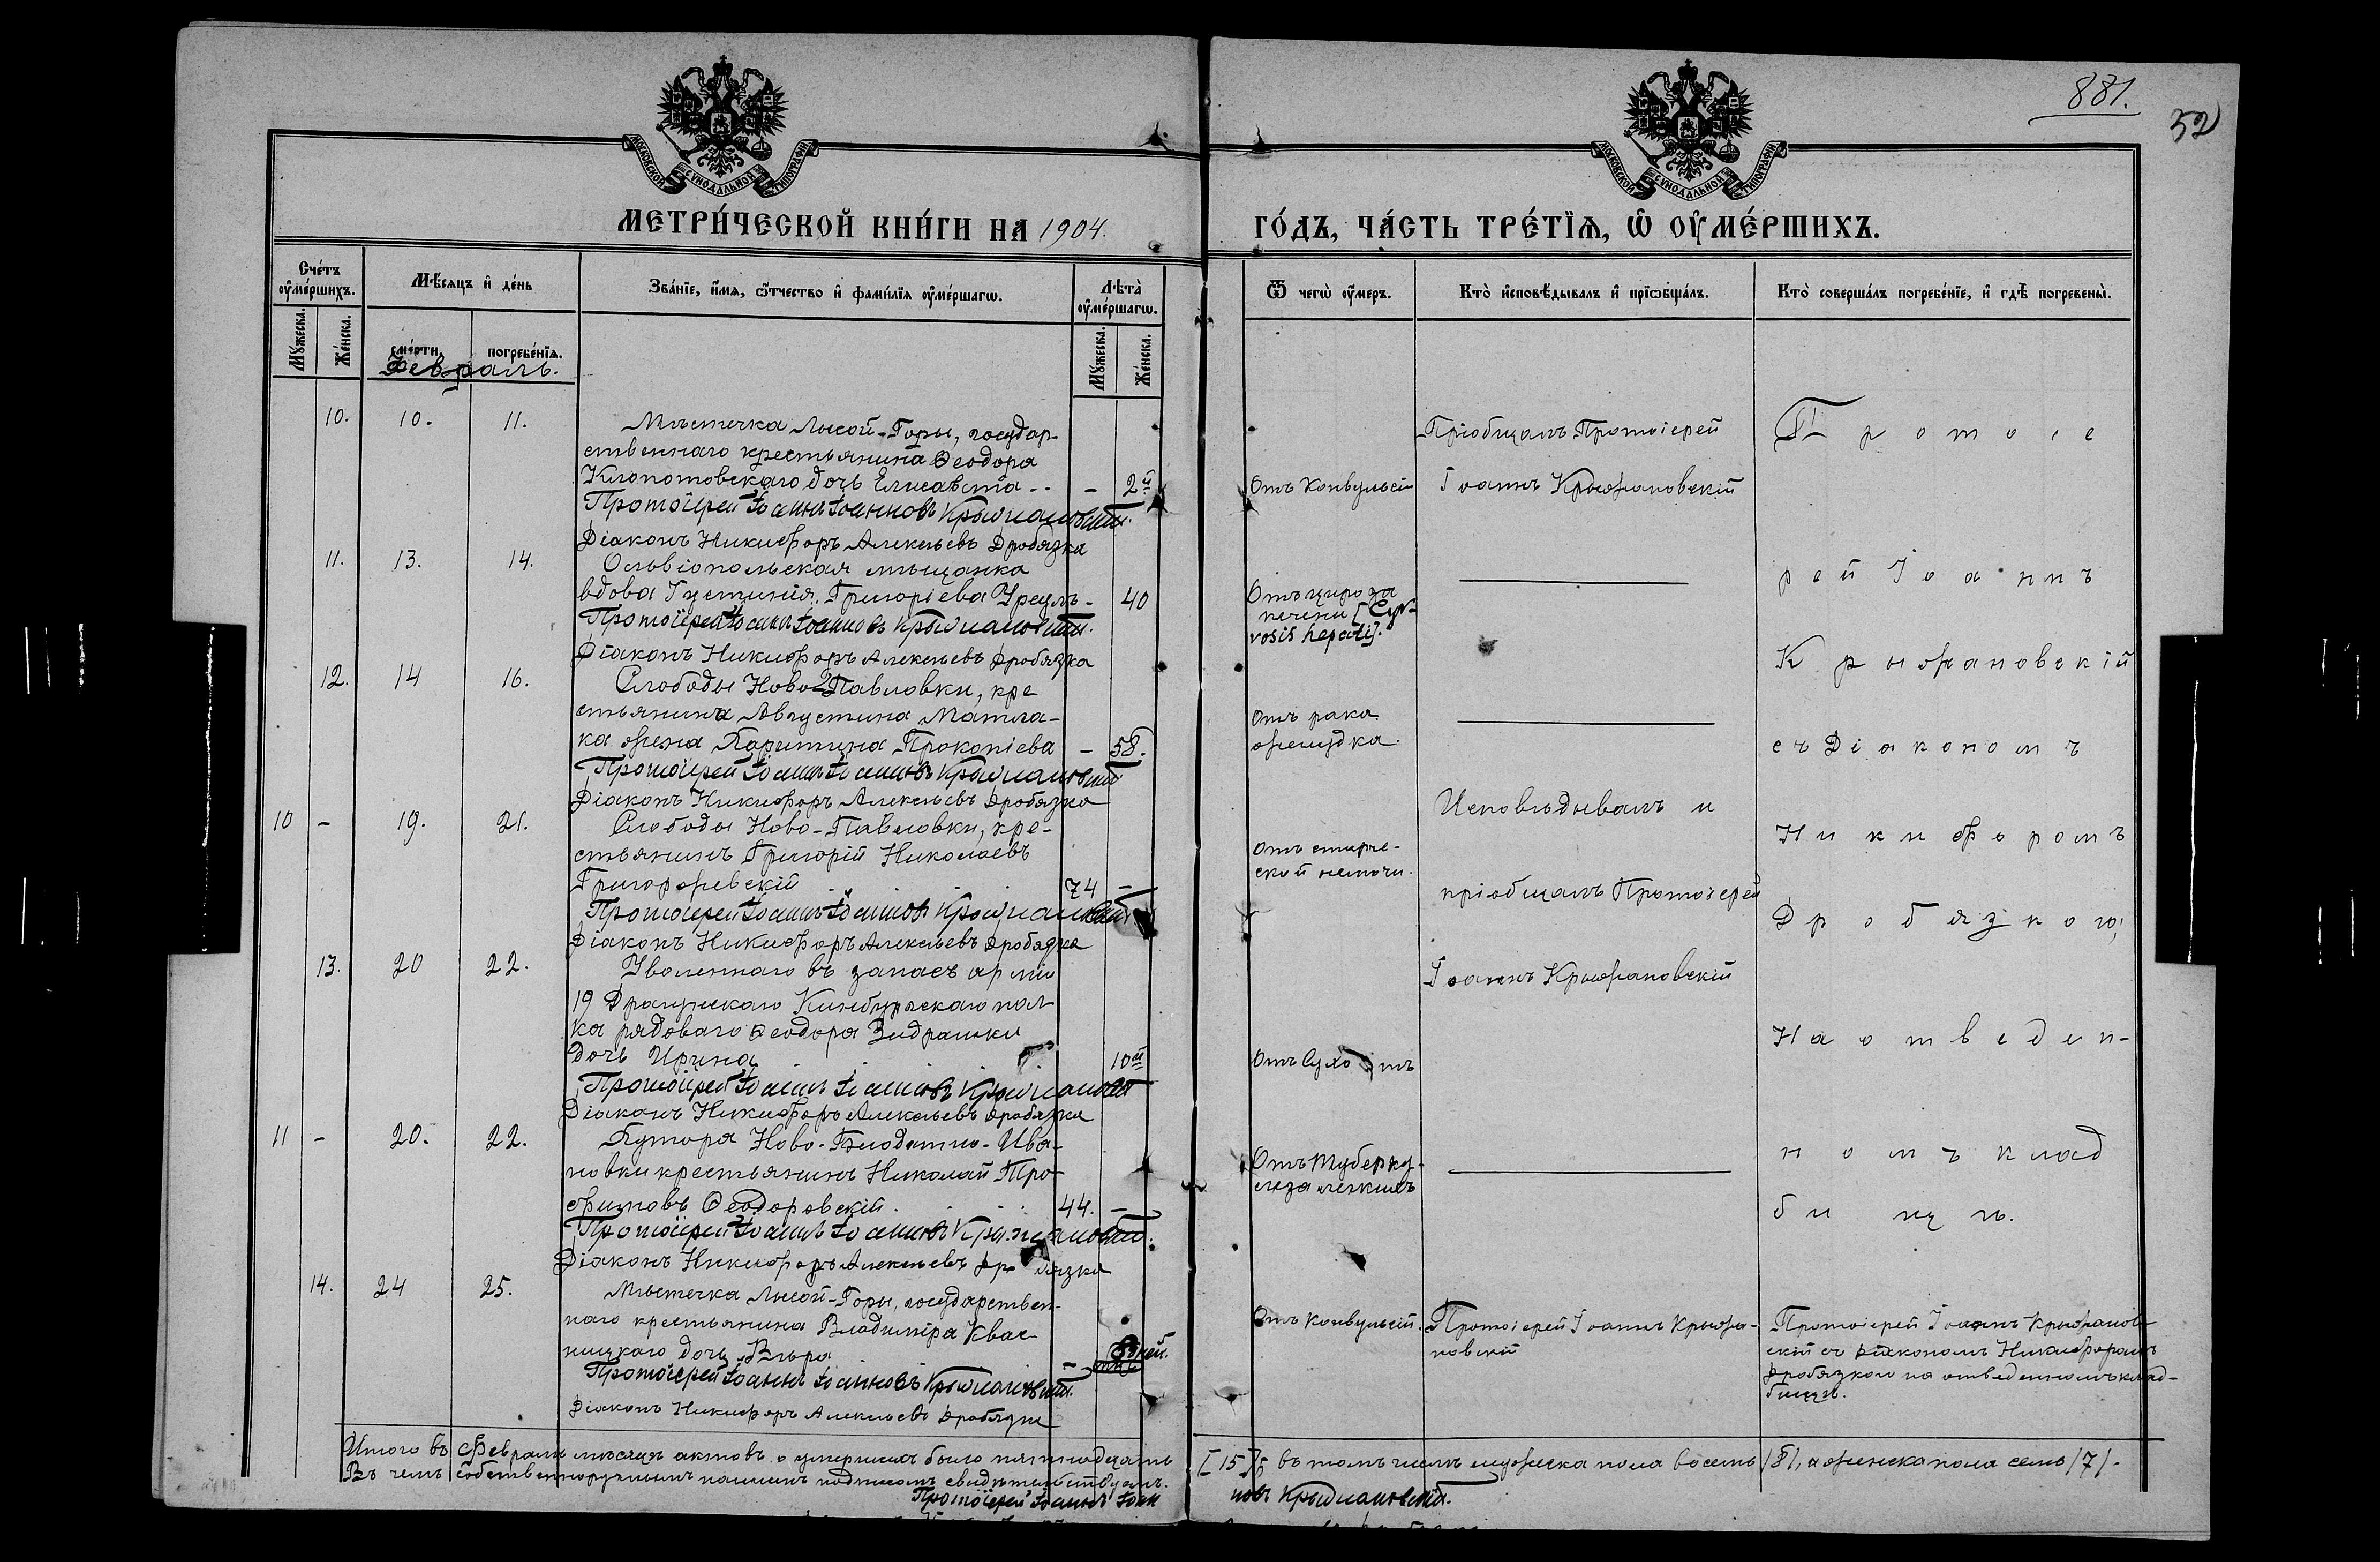 881.
52
МОСКОВСКОЙ СѴНОДАЛЬНОЙ ТИПОГРАФІИ
МОСКОВСКОЙ СѴНОДАЛЬНОЙ ТИПОГРАФІИ
МЕТРИ́ЧЕСКОЙ КНИ́ГИ НА 1904.
ГО́ДЪ, ЧА́СТЬ ТРЕ́ТЇѦ, Ѽ ОУ҆МЕ́РШИХЪ.
Сче́тъ оу҆ме́ршихъ.
Мꙋ́жеска.
Же́нска.
Мѣ́сѧцъ и҆ де́нь
сме́рти.
погребе́нїѧ.
Зва́нїе, и҆́мѧ, ѻ҆́тчество и҆ фами́лїѧ оу҆ме́ршагѡ.
Лѣ́та̀ оу҆ме́ршагѡ.
Мꙋ́жеска.
Же́нска.
Ѿ чегѡ̀ оу҆́меръ.
Кто̀ и҆сповѣ́дывалъ и҆ прїѡбща́лъ.
Кто̀ соверша́лъ погребе́нїе, и҆ гдѣ̀ погребены̀.
Февраль.
10. 10. 11. Мѣстечка Лысой-Горы, государ-
ственнаго крестьянина Ѳеодора
Клопотовскаго дочь Елисавета - - - 2
Протоіерей Іоаннъ Іоанновъ Крыжановскій.
Діаконъ Никифоръ Алексѣевъ Дробязка
Отъ конвульсій
Пріобщалъ Протоіерей
Іоаннъ Крыжановскій
11. 13. 14. Ольвіопольская мѣщанка
вдова Густинія Григоріева - 40
Протоіерей Іоаннъ Іоанновъ Крыжановскій.
Діаконъ Никифоръ Алексѣевъ Дробязка
Отъ цироза
печени [Cyr-
rosis hepati].
12. 14 16. Слободы Ново-Павловки, кре
стьянина Августина Матла-
ка жена Харитина Прокопіева - 58.
Протоіерей Іоаннъ Іоанновъ Крыжановскій
Діаконъ Никифоръ Алексѣевъ Дробязка
Отъ рака
желудка.
10 - 19. 21. Слободы Ново-Павловки, кре-
стьянинъ Григорій Николаевъ
Григоржевскій 74 -
Протоіерей Іоаннъ Іоанновъ Крыжановскій
Діаконъ Никифоръ Алексѣевъ Дробязка
Отъ старче-
ской немочи.
Исповѣдывалъ и
пріобщалъ Протоіерей
Іоаннъ Крыжановскій
13. 20 22. Уволеннаго въ запасъ арміи
19 Драгунскаго Кинбурнскаго пол-
ка рядоваго Ѳеодора
дочь Ирина 10
Протоіерей Іоаннъ Іоанновъ Крыжановскій
Діаконъ Никифоръ Алексѣевъ Дробязка
Отъ Сухотъ
11 - 20. 22. Хутора Ново-Благодатно-Ива-
новки крестьянинъ Николай Тро-
фимовъ Ѳеодоровскій. 44. -
Протоіерей Іоаннъ Іоанновъ Крыжановскій.
Діаконъ Никифоръ Алексѣевъ Дробязка
Отъ туберку-
леза легкихъ
Протоіе
рей Іоаннъ
Крыжановскій
съ Діакономъ
Никифоромъ
Дробязкою,
На отведен-
номъ клад
бищѣ.
14. 24 25. Мѣстечка Лысой-Горы, государствен-
наго крестьянина Владиміра Квас-
ницкаго дочь Вѣра - 8 дней.
Протоіерей Іоаннъ Іоанновъ Крыжановскій.
Діаконъ Никифоръ Алексѣевъ Дробязка
Отъ конвульсій.
Протоіерей Іоаннъ Крыжа-
новскій
Протоіерей Іоаннъ Крыжанов-
скій съ діакономъ Никифоромъ
Дробязкою на отведенномъ клад-
бищѣ.
Итого въ Февралѣ мѣсяцѣ актовъ о умершихъ было пятнадцать [15]; въ томъ числѣ мужеска пола восемь /8/, а женска пола семь /7/.
Въ чемъ собственноручнымъ нашимъ подписомъ свидѣтельствуемъ.
Протоіерей Іоаннъ Іоан
новъ Крыжановскій.